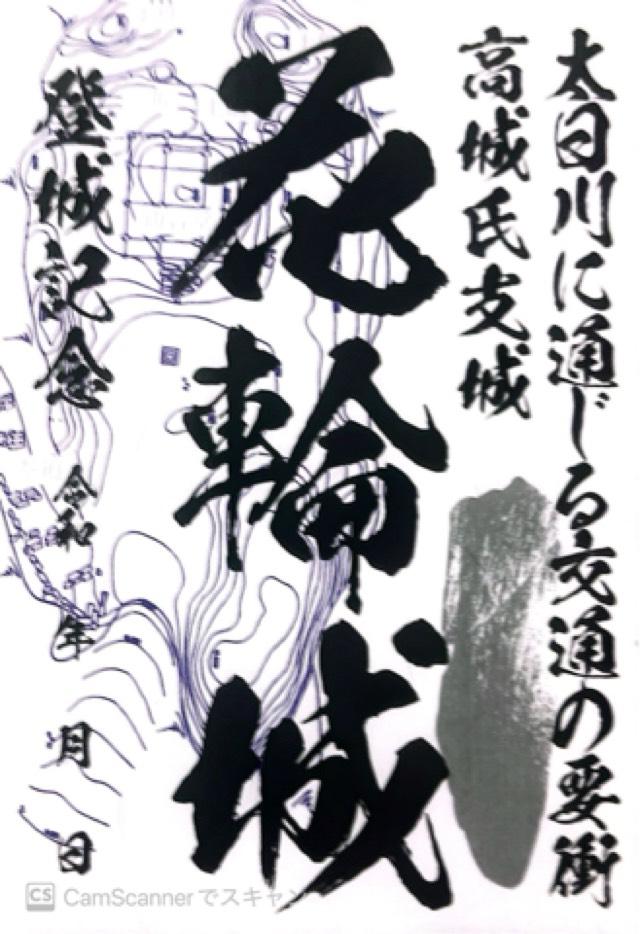 太日川に通じる交通の要衝
高城氏支城
花輪城
登城記念 令和 年 月 日
CS CamScannerでスキャン